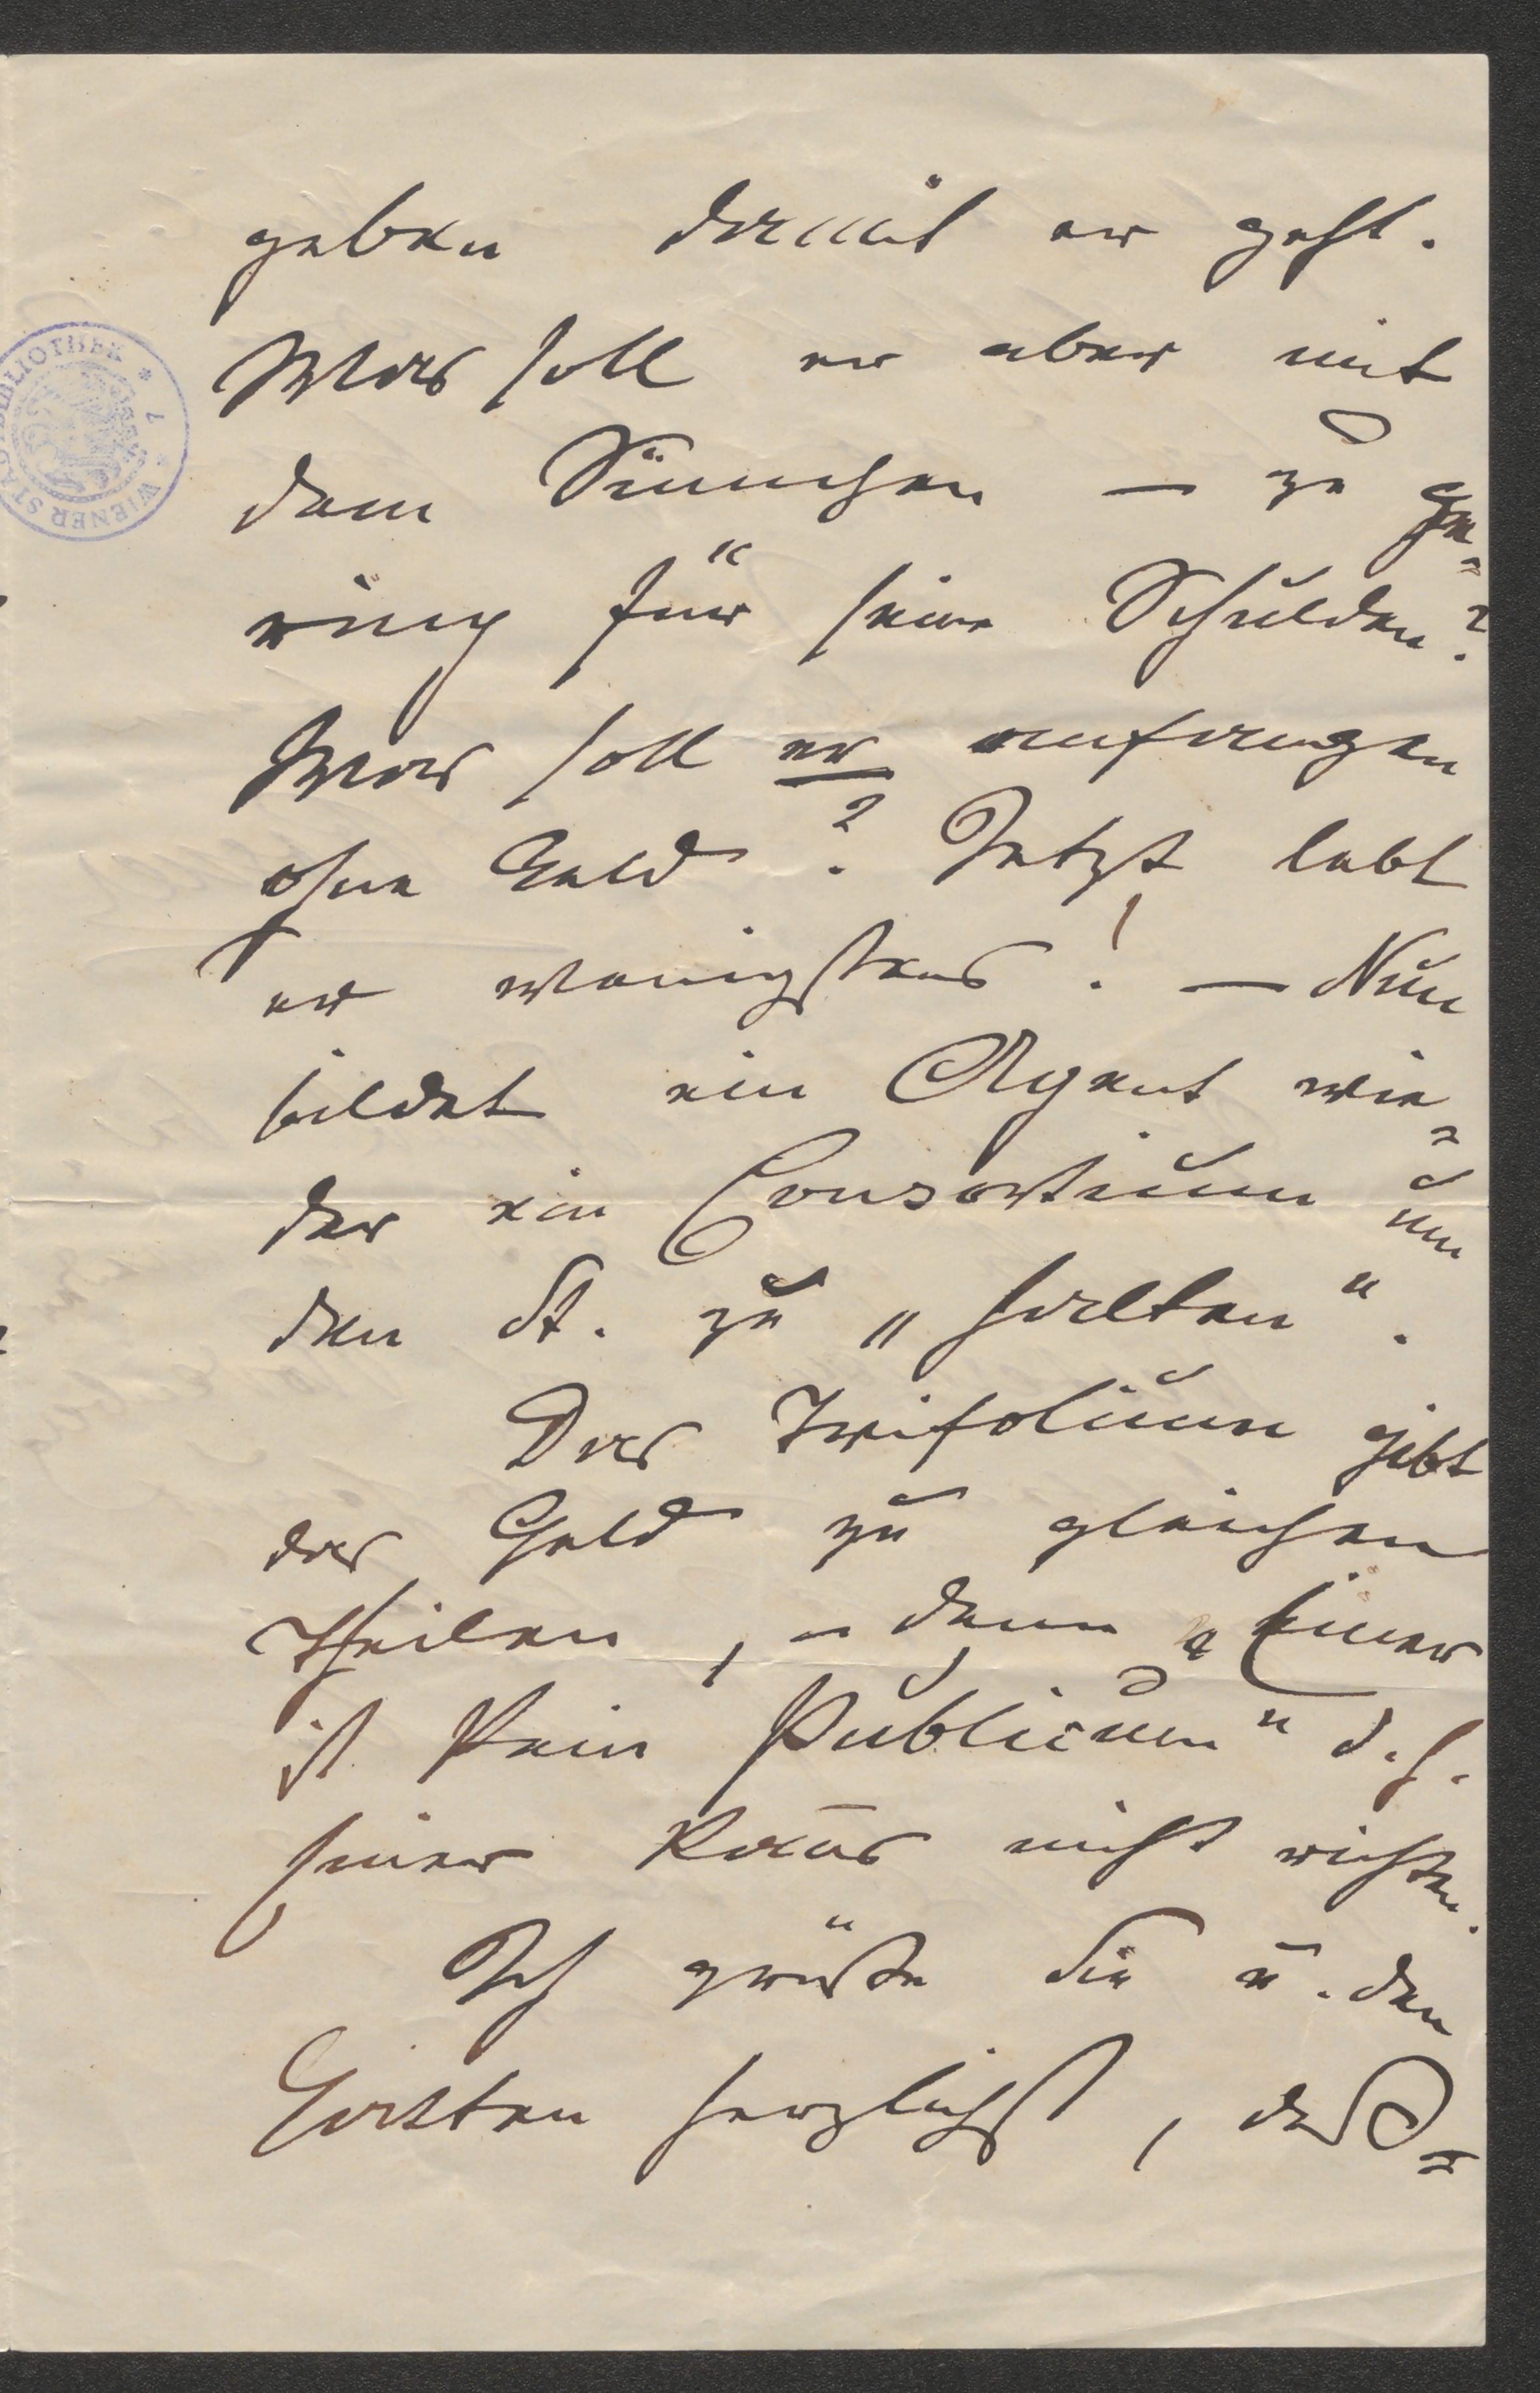 geben damit er geht.
Was soll er aber mit
dem Sümmchen — zu ge-
ring für seine Schulden?
Was soll er anfangen
ohne Geld? Jetzt lebt
er wenigstens! — Nun
bildet ein Agent wie-
der ein Consortium um
den St. zu „halten".
Das Trifolium gibt
das Geld zu gleichen
Theilen, – denn „Einer
ist kein Publicum" d. h.
seiner kanns nicht richten.
Ich grüße Sie u. den
Gatten herzlichst, daß
WIENER STADTBIBLIOTHEK